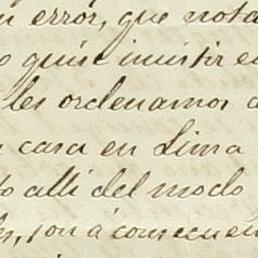 error, que nota
quise invitir e
les ordenamos a
casa en Lima
allí del modo
son á consecuen